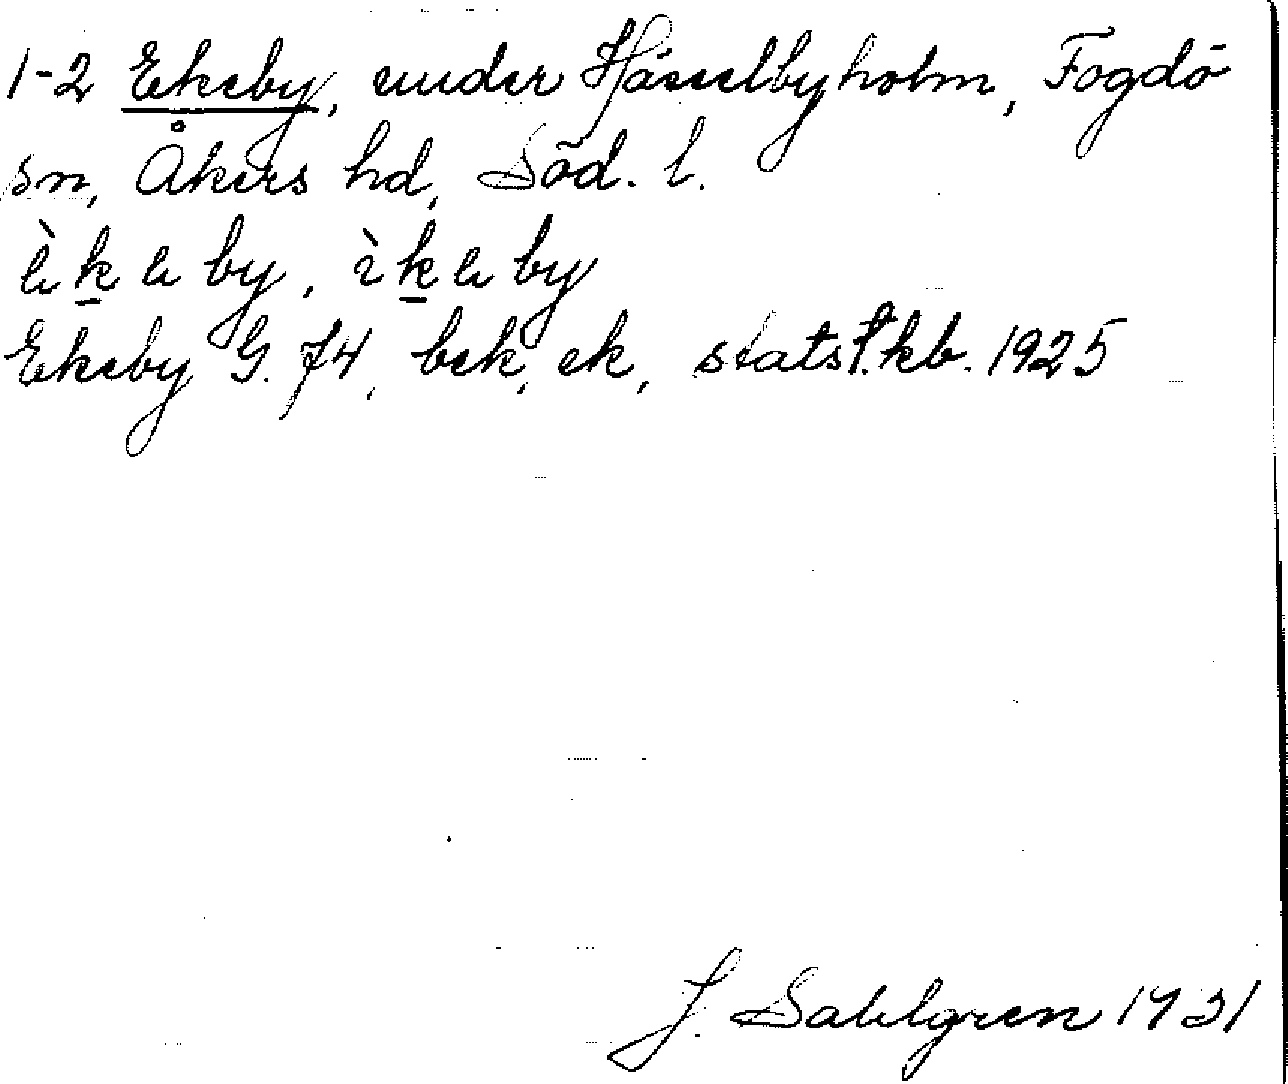 1-2 Ekeby, under Hässelbyholm, Fogdö
sn, Åkers hd, Söd. l.
èkeby, ìkeby
Ekeby G. 74, bek, ek, statsf.kb. 1925
J. Sahlgren 1931